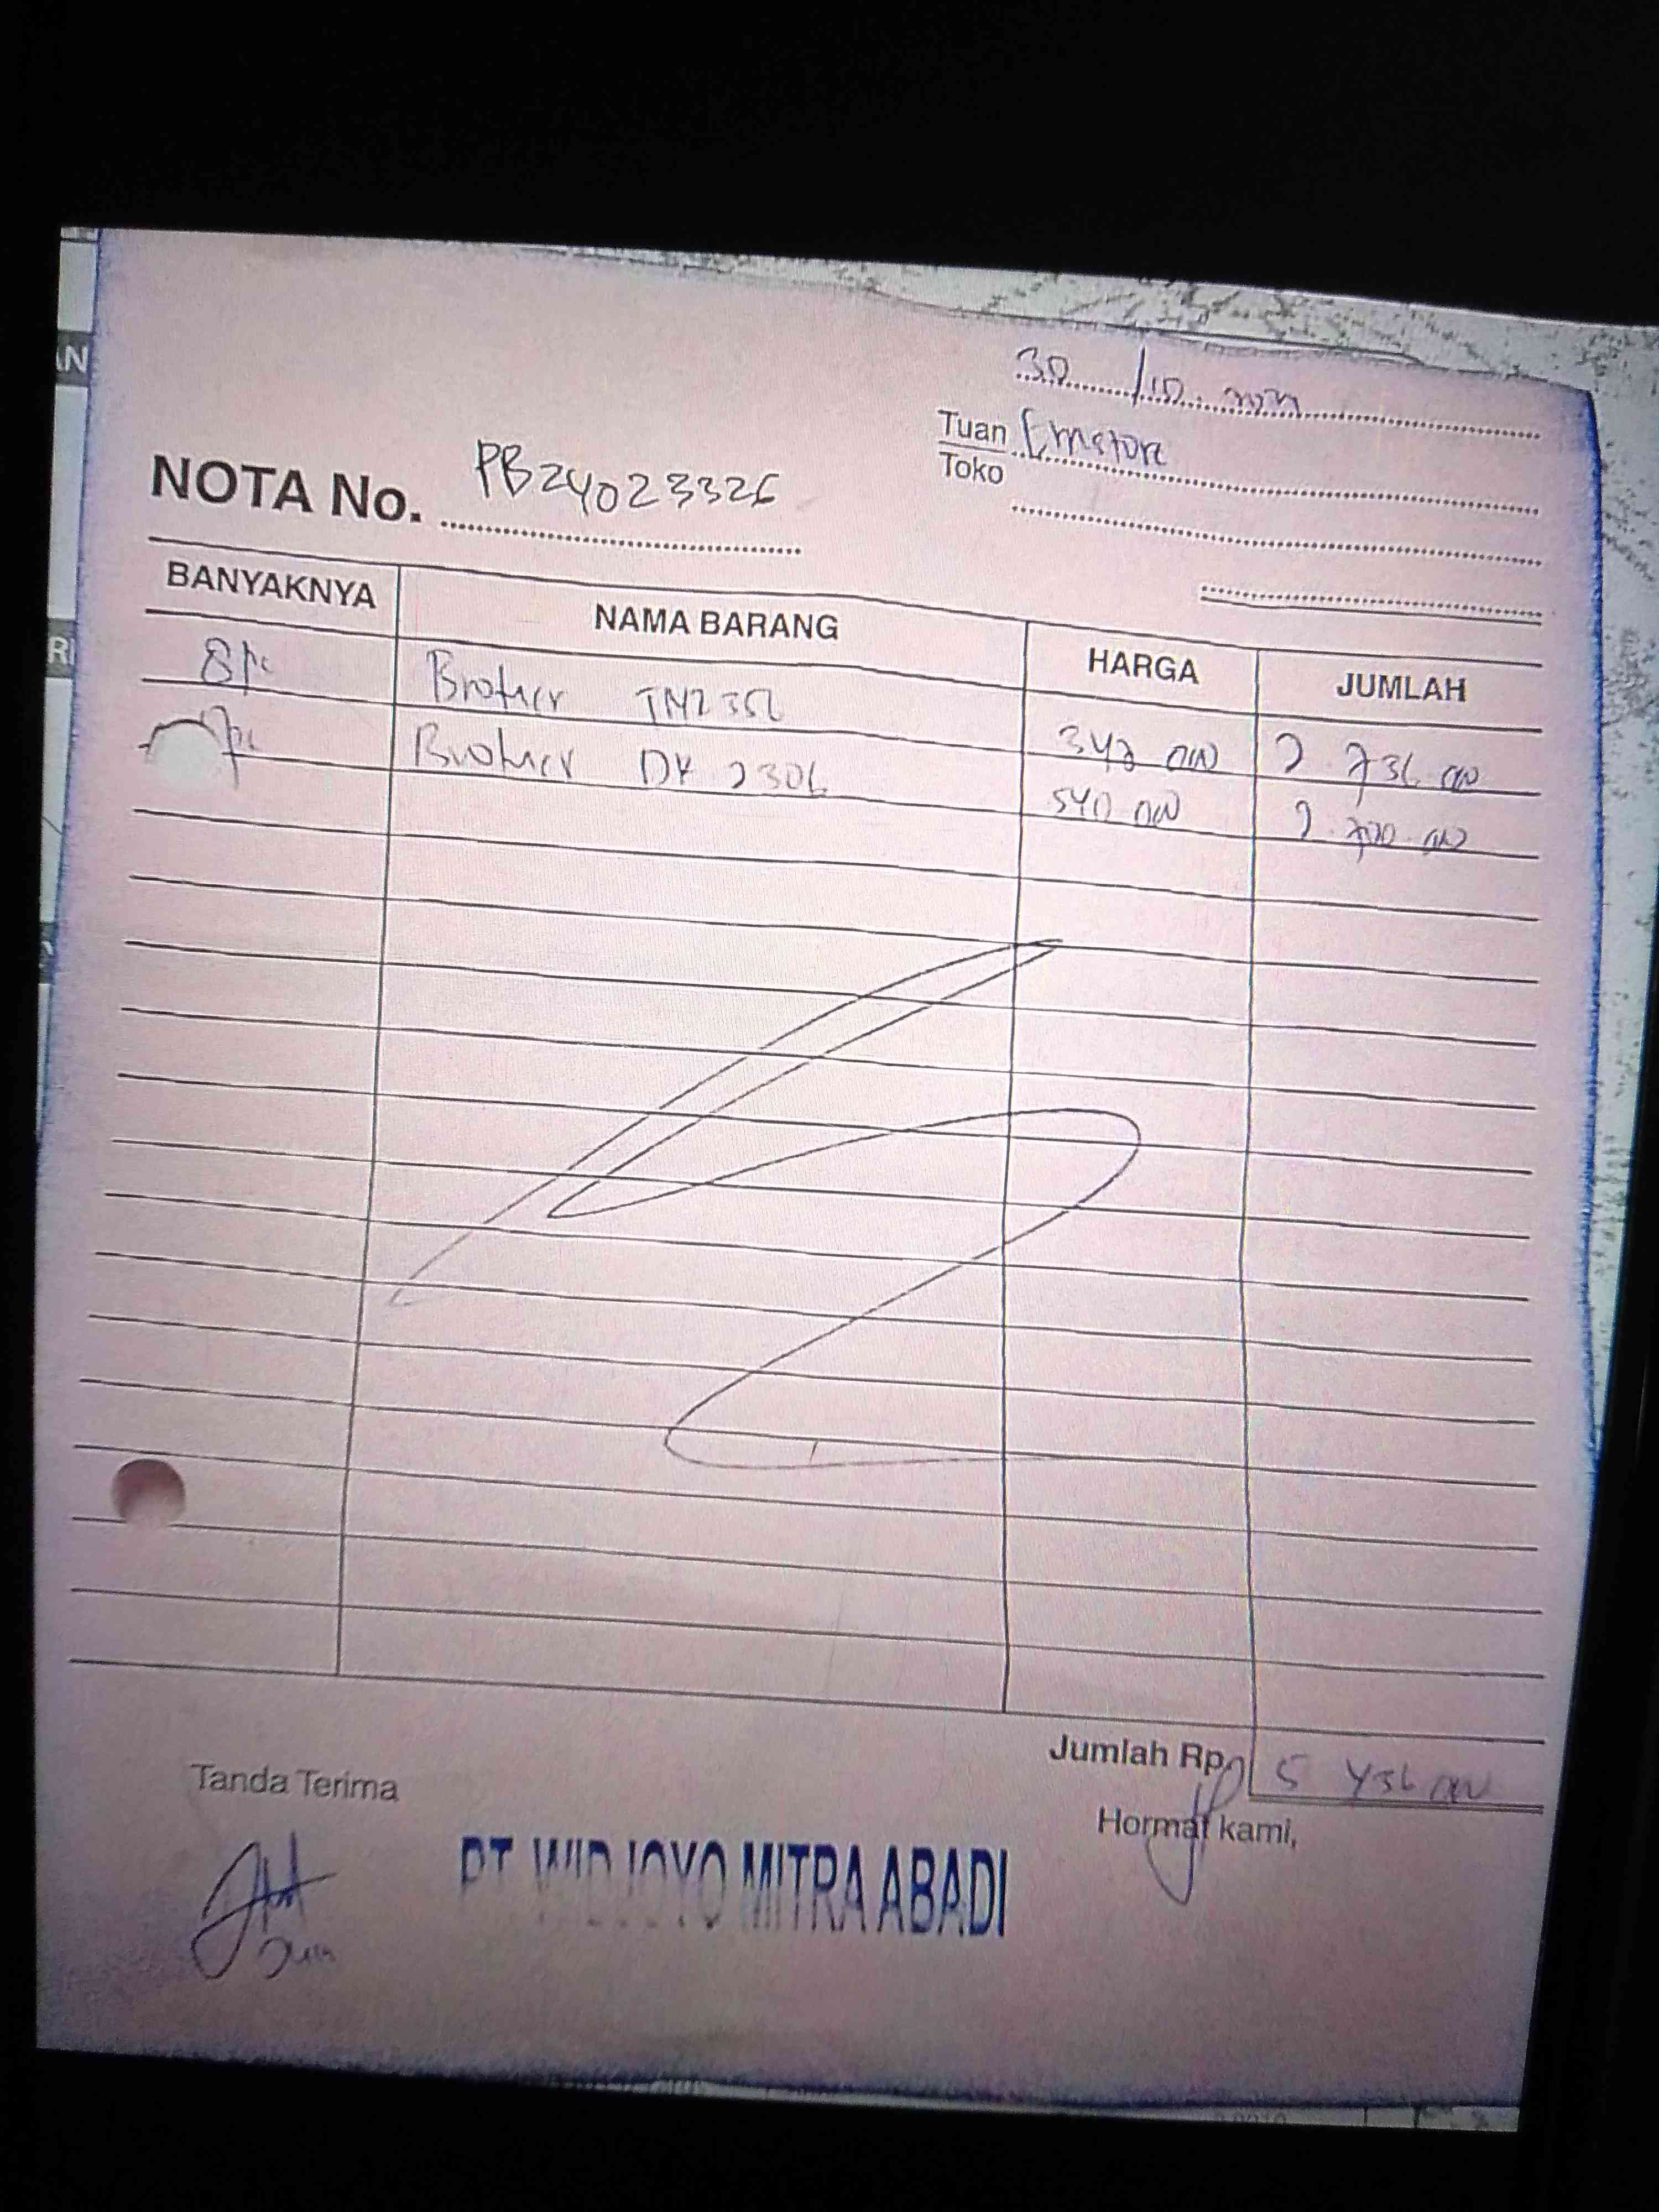 30/10.2024
Tuan Emstore
Toko
NOTA No. PB24023326
BANYAKNYA NAMA BARANG HARGA JUMLAH
8pc Brother TN2356 342 000 2 736 000
pc Brother DR 2306 540 000 2.700.000
Jumlah Rp. 5 436 000
Tanda Terima Hormat kami,
PT. WIDJOYO MITRA ABADI